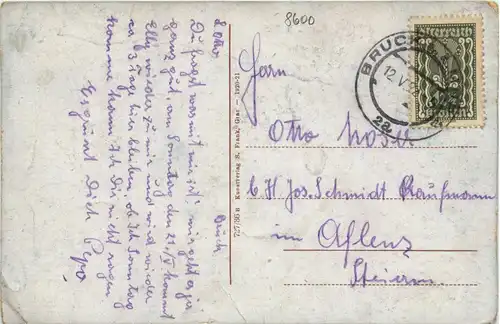 8600
Bruck
L. Otto
Du fragst was mit mir ist; mir geht es ja
ganz gut, am Sonntag den 21/V kommt
Elly wieder zu mir und wird wieder
ca 3 Tage hier bleiben, ob ich Sonntag
komme kann ich Dir nicht sagen
Es grüsst Dich Pepo
727/86 B Kunstverlag Frank, Graz — 1920-21
BRUCK
12 V
2a
Herrn
Otto
b H Jos. Schmidt Kaufmann
in Aflenz
Steierm.